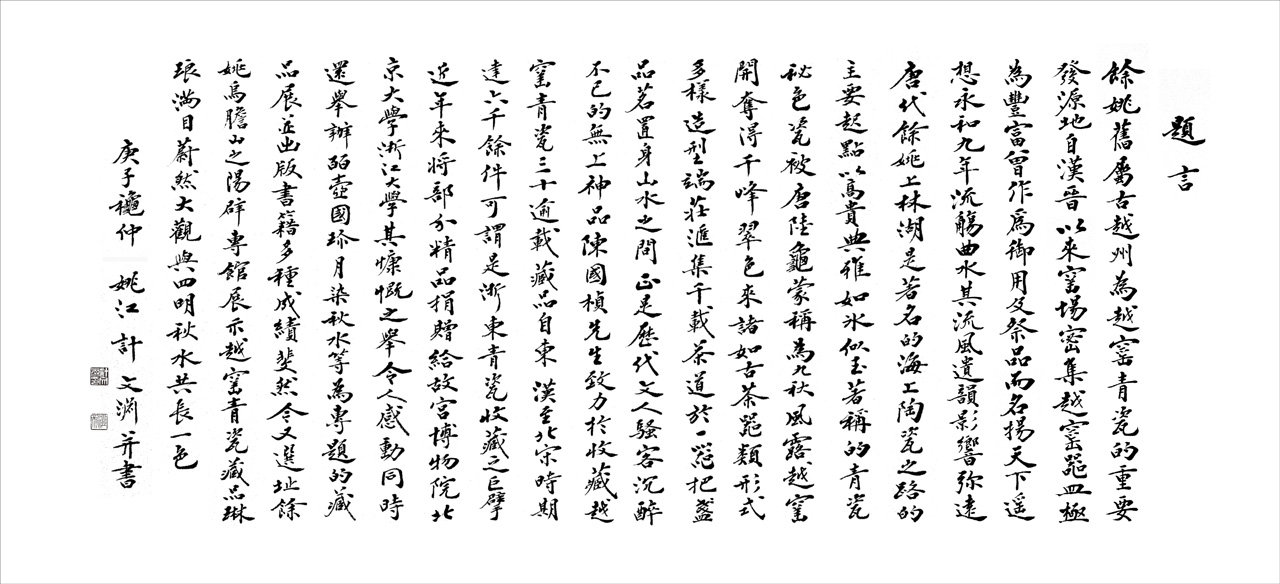 題言
餘姚舊屬古越州為越窑青瓷的重要
發源地自漢晉以來窑場密集越窑器皿極
為豐富曾作為御用及祭品而名揚天下遥
想永和九年流觴曲水其流風遺韻影響弥遠
唐代餘姚上林湖是著名的海上陶瓷之路的
主要起點以高貴典雅如氷似玉著稱的青瓷
秘色瓷被唐陸龜蒙稱為九秋風露越窑
開奪得千峰翠色來諸如古茶器類形式
多樣造型端莊滙集千載茶道於一器把盞
品茗置身山水之間正是歷代文人騷客沉醉
不已的無上神品陳國楨先生致力於收藏越
窑青瓷三十逾載藏品自東漢至北宋時期
達六千餘件可謂是浙東青瓷收藏之巨擘
近年來將部分精品捐贈給故宮博物院北
京大學浙江大學其慷慨之舉令人感動同時
還舉辦弱壺國珍月染秋水等為專題的藏
品展並出版書籍多種成績斐然今又選址餘
姚烏膽山之陽辟專館展示越窑青瓷藏品琳
琅满目蔚然大觀與四明秋水共長一色
庚子龝仲 姚江計文渊并書